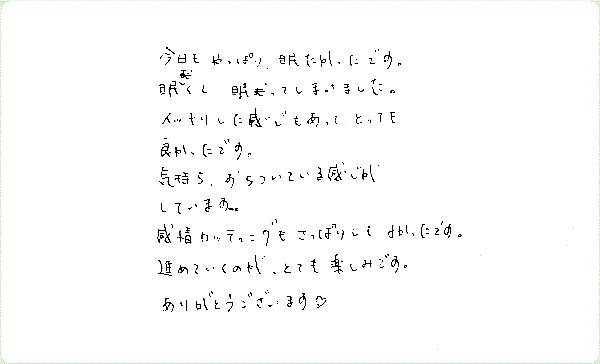 今日も やっぱり、眠たかったです。
眠くて 眠ってしまいました。
スッキリした感じでもあって とっても
良かったです。
気持ち、おちついている感じが
しています。
感情カッティングも さっぱりしてよかったです。
進めていくのが、とても 楽しみです。
ありがとうございます♡